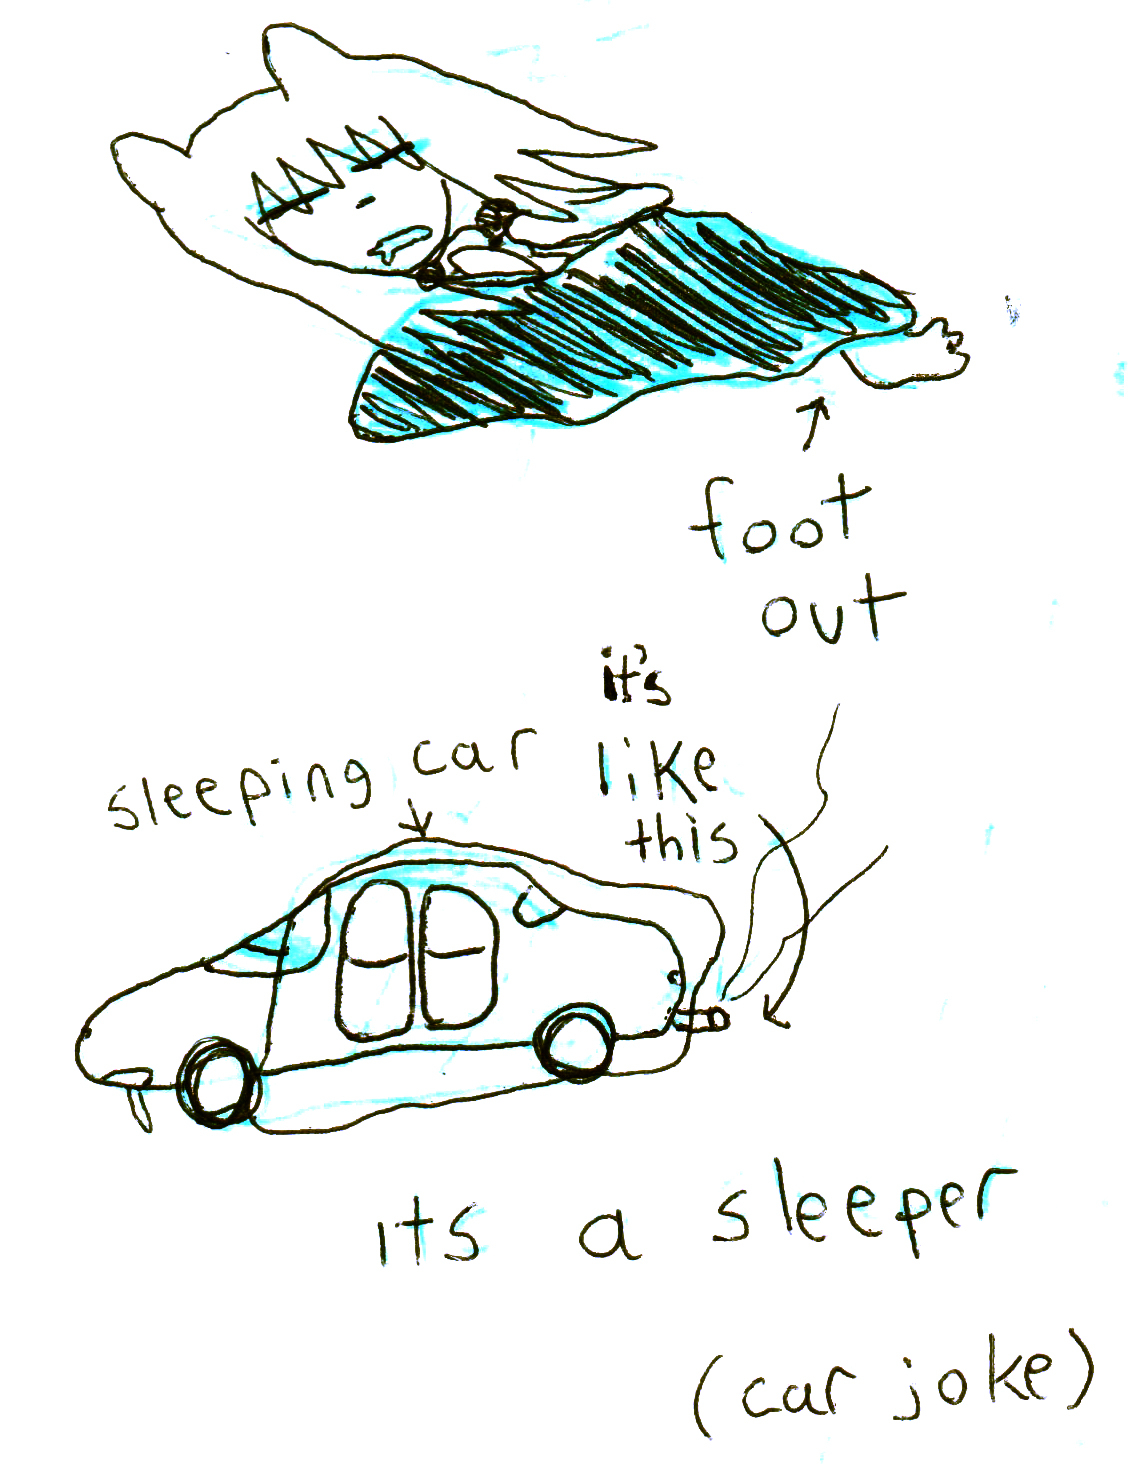 foot
out
it's
like
this
sleeping car
its a sleeper
(car joke)